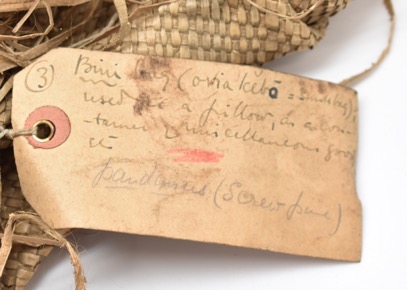 (3) Bini bag (oviakẽbö =
used as a pillow, as a con-
-tainer miscellaneous goods
etc
pandanus (Screw pine)